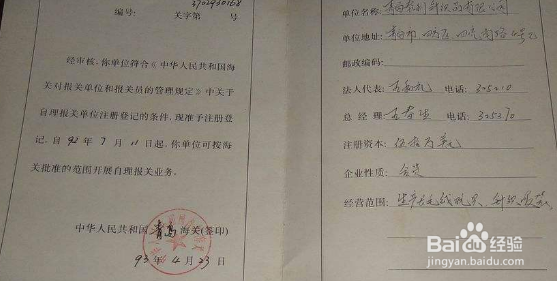 3702930168
编号: 关字第 号
经审核, 你单位符合《中华人民共和国海
关对报关单位和报关员的管理规定》中关于
自理报关单位注册登记的条件, 现准予注册登
记, 自 92 年 7 月 11 日起, 你单位可按海
关批准的范围开展自理报关业务。
中华人民共和国 青岛 海关(签印)
93 年 4 月 23 日
单位名称: 青岛 有限公司
单位地址: 青岛市 四方区 号
邮政编码:
法人代表: 电话: 325210
总经理 电话: 325270
注册资本: 万美元
企业性质: 合资
经营范围: 生产
Baidu 经验
jingyan.baidu.com